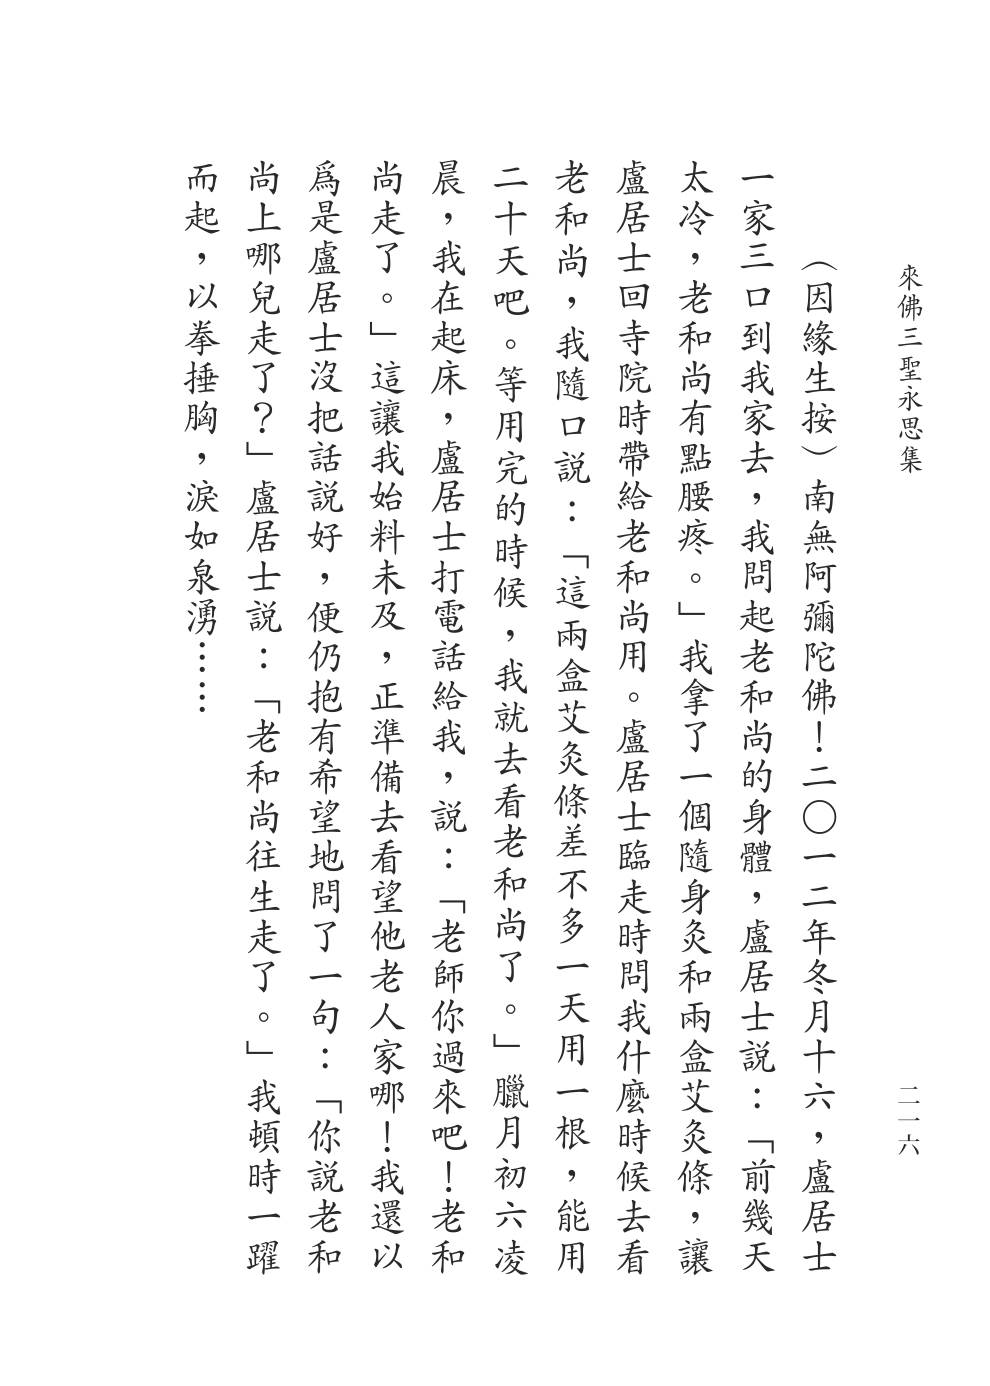 來佛三聖永思集
二一六
（因緣生按）南無阿彌陀佛！二〇一二年冬月十六，盧居士
一家三口到我家去，我問起老和尚的身體，盧居士說：「前幾天
太冷，老和尚有點腰疼。」我拿了一個隨身灸和兩盒艾灸條，讓
盧居士回寺院時帶給老和尚用。盧居士臨走時問我什麼時候去看
老和尚，我隨口説：「這兩盒艾灸條差不多一天用一根，能用
二十天吧。等用完的時候，我就去看老和尚了。」臘月初六凌
晨，我在起床，盧居士打電話給我，説：「老師你過來吧！老和
尚走了。」這讓我始料未及，正準備去看望他老人家哪！我還以
爲是盧居士沒把話説好，便仍抱有希望地問了一句：「你説老和
尚上哪兒走了？」盧居士説：「老和尚往生走了。」我頓時一躍
而起，以拳捶胸，淚如泉湧……